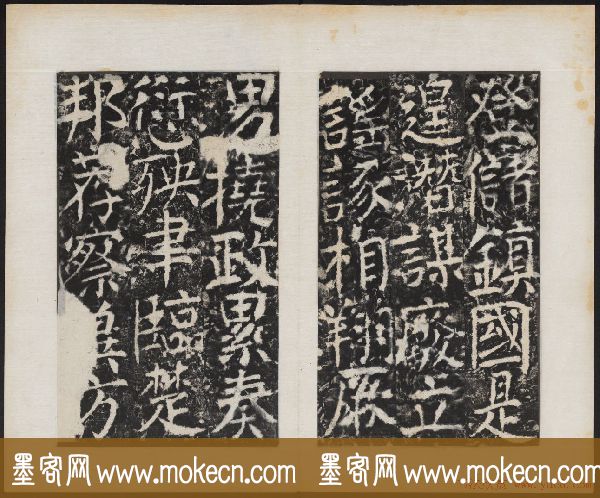 登儲鎮國是
遑潛謀廢立
謠諑相翔
男撓政累奏
愆殃聿臨楚
邦荐察方
墨客网 www.mokecn.com
墨客网 www.mokecn.com